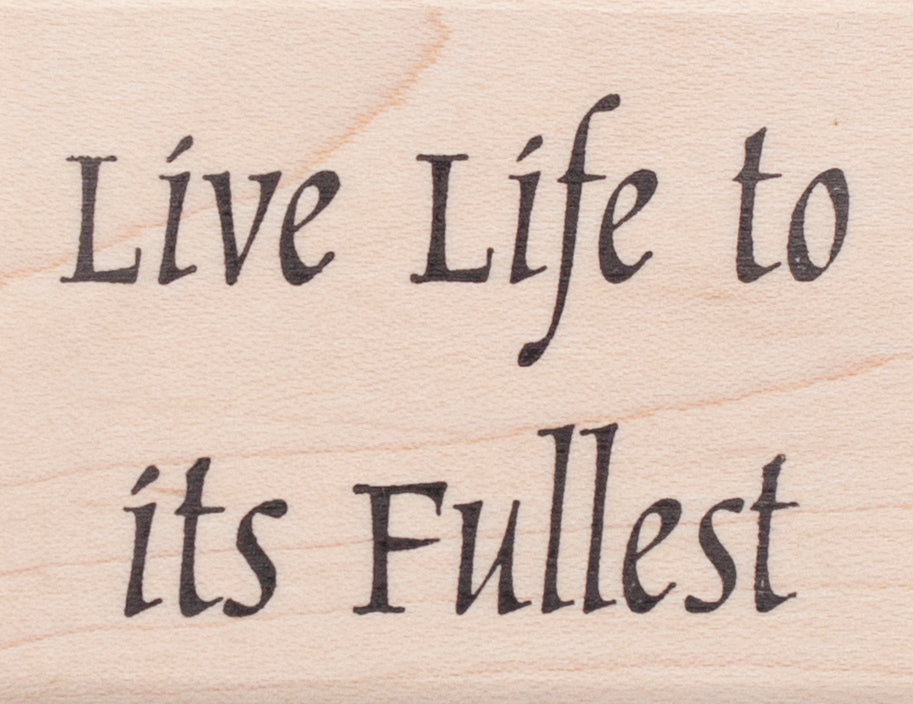 Live Life to
its Fullest